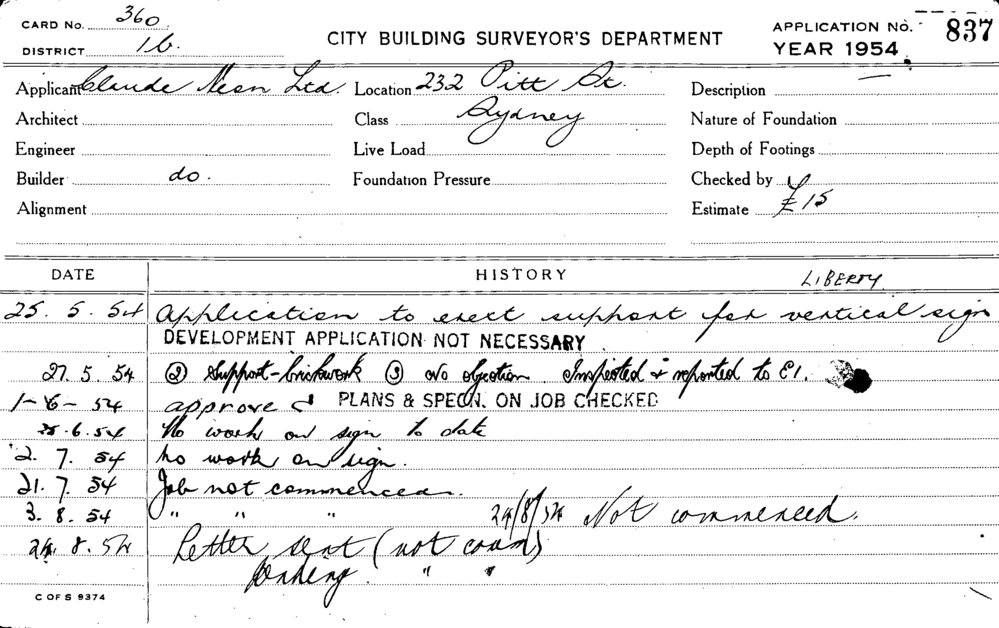 CARD No. 360
DISTRICT 1b.
CITY BUILDING SURVEYOR'S DEPARTMENT
APPLICATION No. 837
YEAR 1954
Applicant Claude Neon Ltd. Location 232 Pitt St. Description
Architect Class Sydney Nature of Foundation
Engineer Live Load Depth of Footings
Builder do. Foundation Pressure Checked by
Alignment Estimate £15
DATE HISTORY LIBERTY
25. 5. 54 Application to erect support for vertical sign
DEVELOPMENT APPLICATION NOT NECESSARY
27. 5. 54 ② Support-brickwork ③ No objection. Inspected & reported to E1.
1-6-54 approved PLANS & SPECN. ON JOB CHECKED
.6.54 No work on sign to date
2. 7. 54 no work on sign.
21. 7. 54 Job not commenced.
3. 8. 54 " " " 24/8/54 Not commenced.
24. 8. 54 Letter sent (not comm)
pending " "
C OF S 9374